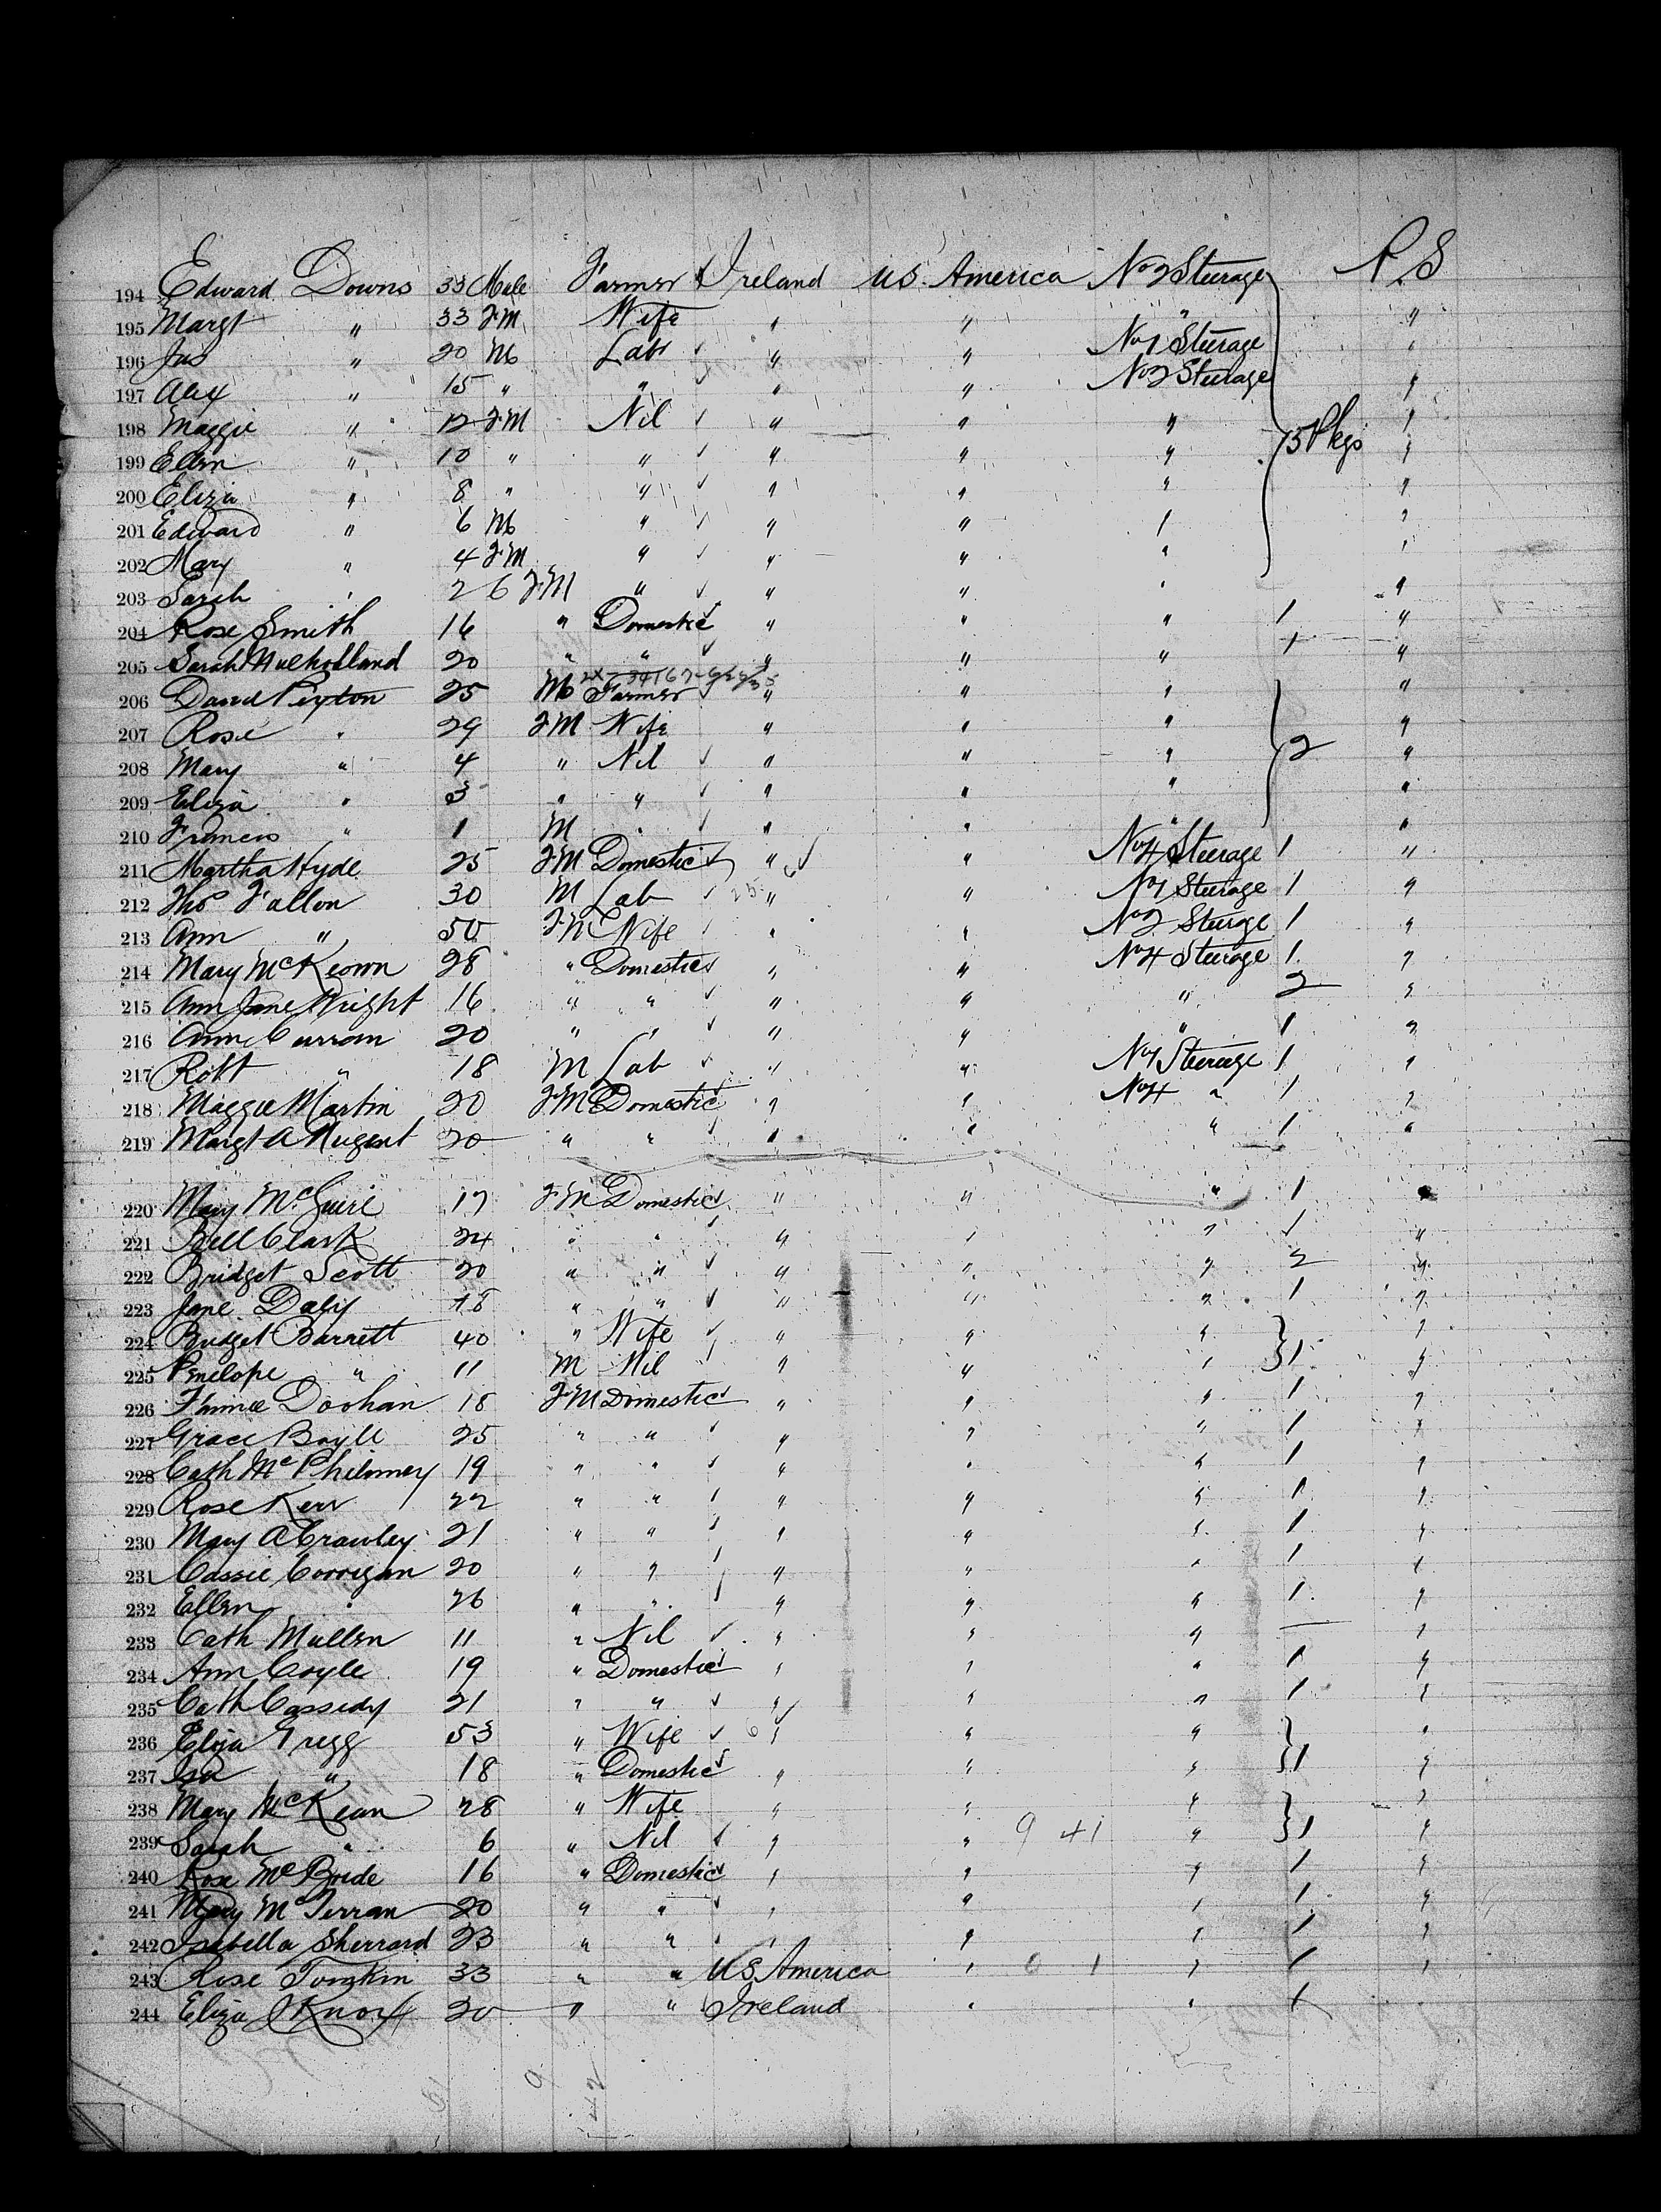 194 Edward Downs 33 Male Farmer Ireland U.S. America No 2 Steerage P.S
195 Margt " 33 F.M. Wife " " " "
196 Jas " 20 M Lab " " No 1 Steerage "
197 Alex " 15 " " " " No 2 Steerage "
198 Maggie " 12 F.M Nil " " " 5 Pkgs "
199 Ellen " 10 " " " " " "
200 Eliza " 8 " " " " " "
201 Edward " 6 M " " " " "
202 Mary " 4 F.M " " " " "
203 Sarah " 26 F.M " " " " "
204 Rose Smith 16 " Domestic " " " 1 "
205 Sarah Mulholland 20 " " " " " 1 "
206 David Peyton 25 M Farmer " " " "
207 Rose " 29 F.M Wife " " " "
208 Mary " 4 " Nil " " " 2 "
209 Eliza " 3 " " " " " "
210 Francis " 1 M " " " " "
211 Martha Hyde 25 F.M Domestic " " No 4 Steerage 1 "
212 Thos Fallon 30 M Lab " " No 1 Steerage 1 "
213 Ann " 50 F.M Wife " " No 2 Sterge 1 "
214 Mary McKeown 28 " Domestic " " No 4 Steerage 1 "
215 Ann Jane Wright 16 " " " " " 2 "
216 Ann Curran 20 " " " " " 1 "
217 Robt " 18 M Lab " " No 1 Steerage 1 "
218 Maggie Martin 20 F.M Domestic " " No 4 " 1 "
219 Margt A Nugent 20 " " " " " 1 "
220 Mary McGuire 17 F.M Domestic " " " 1 "
221 Bell Clark 24 " " " " " 1 "
222 Bridget Scott 20 " " " " " 2 "
223 Jane Daly 18 " " " " " 1 "
224 Bridget Barrett 40 " Wife " " " 1 "
225 Penelope " 11 M Nil " " " "
226 Fannie Doohan 18 F.M Domestic " " " 1 "
227 Grace Boyle 25 " " " " " 1 "
228 Cath McPhilomey 19 " " " " " 1 "
229 Rose Kerr 22 " " " " " 1 "
230 Mary A Crawley 21 " " " " " 1 "
231 Cassie Corrigan 20 " " " " " 1 "
232 Ellen " 26 " " " " " 1 "
233 Cath Mullen 11 " Nil " " " — "
234 Ann Coyle 19 " Domestic " " " 1 "
235 Cath Cassidy 21 " " " " " 1 "
236 Eliza Gregg 53 " Wife " " " "
237 Isa " 18 " Domestic " " " 1 "
238 Mary McKean 28 " Wife " " " "
239 Sarah " 6 " Nil " " 9 41 " 1 "
240 Rose McBride 16 " Domestic " " " 1 "
241 Mary McTerran 20 " " " " " 1 "
242 Isabella Sherrard 23 " " " " " 1 "
243 Rose Tomkin 33 " " U.S. America " " 1 "
244 Eliza J Knox 20 " " Ireland " " 1